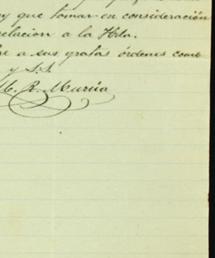 y que tomar en consideración
relacion a la Hda.
a sus gratas órdenes como
y S.S.
M. R. Murcia